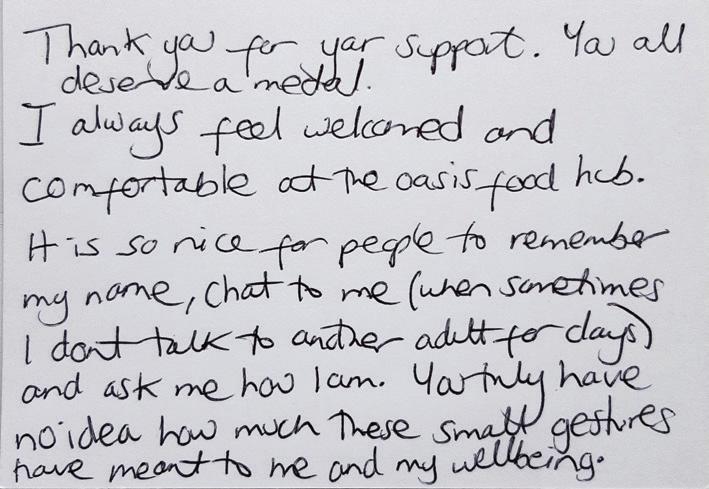 Thank you for your support. You all
deserve a medal.
I always feel welcomed and
comfortable at the oasis food hub.
It is so nice for people to remember
my name, chat to me (when sometimes
I dont talk to another adult for days)
and ask me how I am. You truly have
no idea how much these small gestures
have meant to me and my wellbeing.